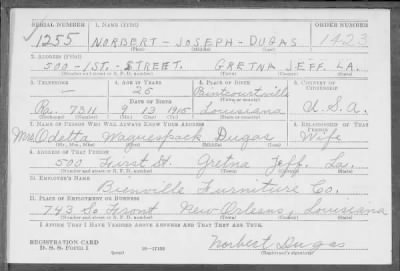 SERIAL NUMBER 1. NAME (Print) ORDER NUMBER
1255 NORBERT - JOSEPH - DUGAS 1423
(First) (Middle) (Last)
2. ADDRESS (Print)
500 - 1ST. - STREET. GRETNA JEFF. LA.
(Number and street or R. F. D. number) (Town) (County) (State)
3. TELEPHONE 4. AGE IN YEARS 5. PLACE OF BIRTH 6. COUNTRY OF CITIZENSHIP
— 25
DATE OF BIRTH
Ra. 7311 9 13 1915 Louisiana U.S.A.
(Exchange) (Number) (Mo.) (Day) (Yr.) (State or country)
7. NAME OF PERSON WHO WILL ALWAYS KNOW YOUR ADDRESS 8. RELATIONSHIP OF THAT PERSON
Mrs. Odetta Waguespack Dugas Wife
(Mr., Mrs., Miss) (First) (Middle) (Last)
9. ADDRESS OF THAT PERSON
500 First St. Gretna Jeff. La.
(Number and street or R. F. D. number) (Town) (County) (State)
10. EMPLOYER'S NAME
Bienville Furniture Co.
11. PLACE OF EMPLOYMENT OR BUSINESS
743 So Front New Orleans, Louisiana
(Number and street or R. F. D. number) (Town) (County) (State)
I AFFIRM THAT I HAVE VERIFIED ABOVE ANSWERS AND THAT THEY ARE TRUE.
REGISTRATION CARD
D. S. S. Form 1 16—17105 Norbert Dugas
(Registrant's signature)